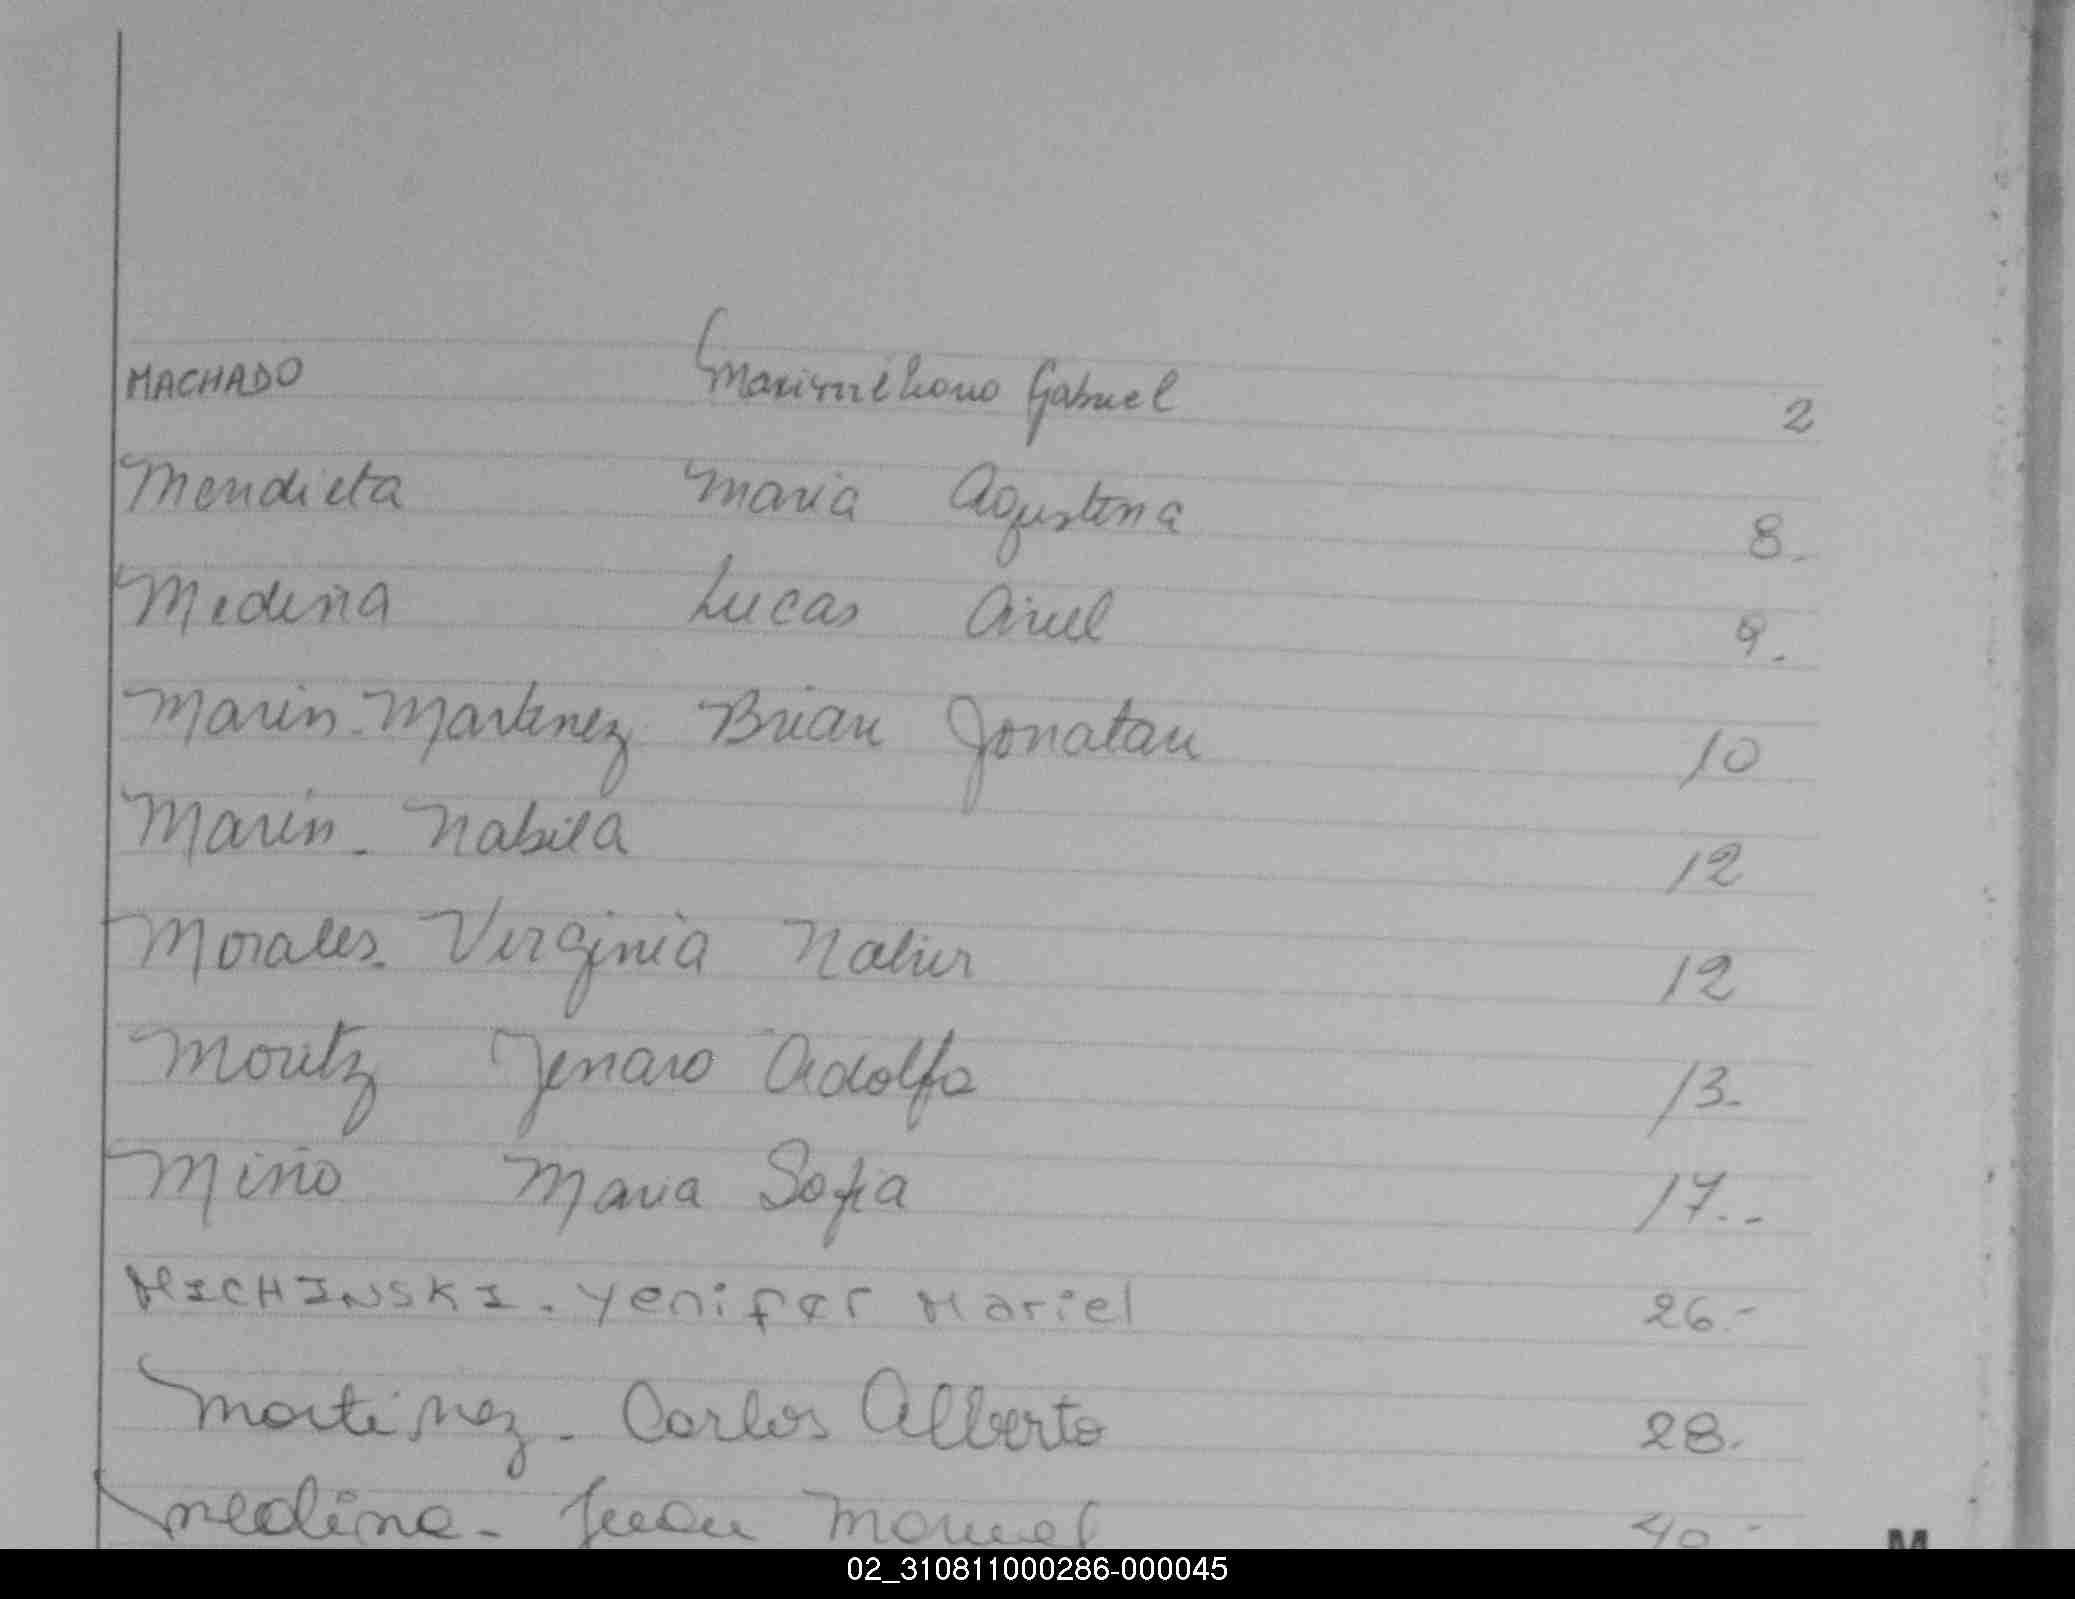 MACHADO Maximiliano Gabriel 2
Mendieta Maria Agustina 8.
Medina Lucas Ariel 9.
Marin - Martinez Brian Jonatan 10
Marin - Nabila 12
Morales - Virginia 12
Moritz Jenaro Adolfo 13-
Miño Maria Sofia 17.-
MICHINSKI - Yenifer Mariel 26.-
Martinez - Carlos Alberto 28.
Medina - Juan Manuel 40 -
M
02_310811000286-000045